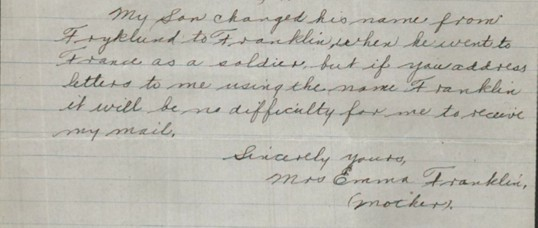 My Son changed his name from
Fryklund to Franklin, when he went to
France as a soldier, but if you address
letters to me using the name Franklin
it will be no difficulty for me to receive
my mail.
Sincerely yours,
Mrs Emma Franklin,
(Mother).